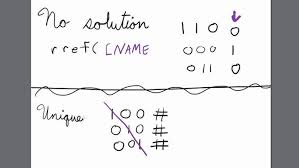 No solution
1 1 0 0
rref( [NAME
0 0 0 1
0 1 1 0
Unique
1 0 0 #
0 1 0 #
0 0 1 #